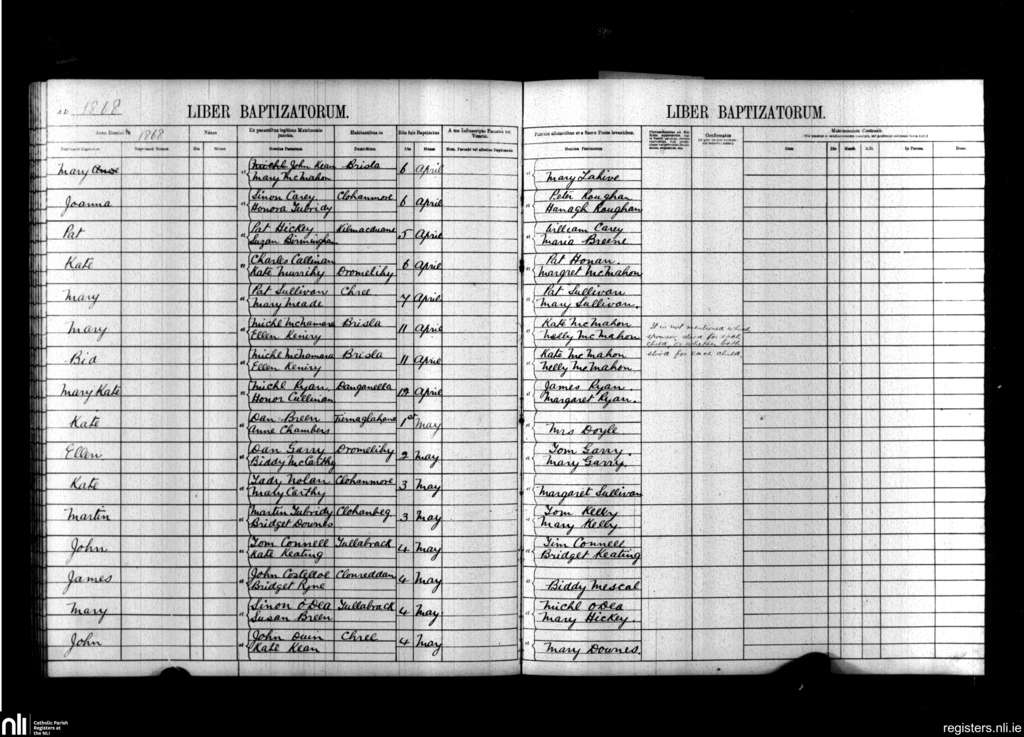 1868
LIBER BAPTIZATORUM.
LIBER BAPTIZATORUM.
1868
Mary
Michl John Kean Brisla 6 April
Mary McMahon
Mary Lahive
Joanna
Sinon Carey Clohanmore 6 April
Honora Tubridy
Peter Roughan
Hanagh Roughan
Pat
Pat Hickey Kilmacduane 5 April
Suzan Birmingham
William Carey
Maria Breene
Kate
Charles Callinan 6 April
Kate Murrihy Dromelihy
Pat Honan.
Margret McMahon
Mary
Pat Sullivan Chree 7 April
Mary Meade
Pat Sullivan
Mary Sullivan.
Mary
Michl McNamara Brisla 11 April
Ellen Keniry
Kate McMahon
Nelly McMahon
It is not mentioned which
sponsor stood for each
child, or whether both
stood for each child
Bid
Michl McNamara Brisla 11 April
Ellen Keniry
Kate McMahon
Nelly McMahon
Mary Kate
Michl Ryan Danganella April
Honor Cullinan
James Ryan.
Margaret Ryan.
Kate
Dan Breen Tiernaglahane 1st May
Anne Chambers
Mrs Doyle
Ellen
Dan Garry Dromelihy 2 May
Biddy McCarthy
Tom Garry.
Mary Garry.
Kate
Tady Nolan Clohanmore 3 May
Mary Carthy
Margaret Sullivan
Martin
Martin Tubridy Clohanbeg 3 May
Bridget Downes
Tom Kelly
Mary Kelly
John
Tom Connell Tullabrack 4 May
Kate Keating
Tim Connell
Bridget Keating
James
John Costelloe Clonreddan 4 May
Bridget Pyne
Biddy Mescal
Mary
Sinon O'Dea Tullabrack 4 May
Susan Breen
Michl O'Dea
Mary Hickey.
John
John Quin Chree 4 May
Kate Kean
Mary Downes.
nli
Catholic Parish
Registers at
the NLI
registers.nli.ie